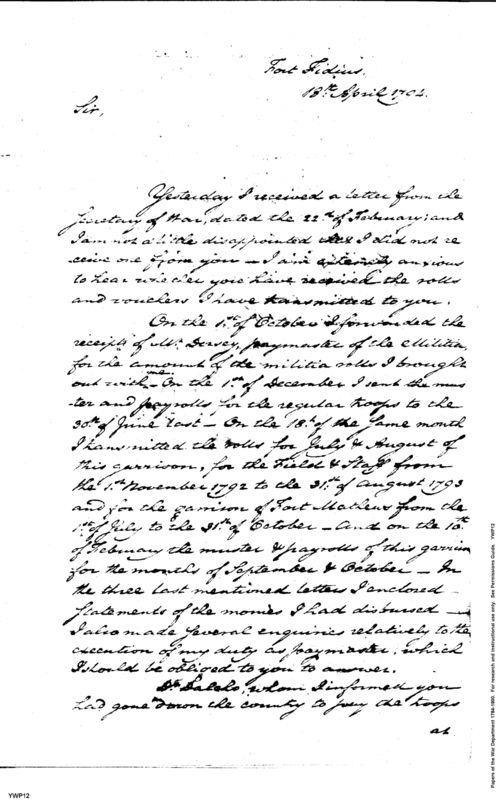 Fort Fidius.
13th April 1794.
Sir,
Yesterday I received a letter from the
Secretary of War, dated the 22d of February; and
I am not a little disappointed that I did not re
ceive one from you – I am extremely anxious
to hear whether you have received the rolls
and vouchers I have transmitted to you.
On the 1st of October I forwarded the
receipts of Mr. Dorsey, paymaster of the Militia,
for the amount of the militia rolls I brought
out with me – On the 1st of December I sent the mus
ter and payrolls for the regular troops to the
30th of June last – On the 18th of the same month
I transmitted the rolls for July & August of
this garrison, for the Field & Staff from
the 1st November 1792 to the 31st of August 1793
and for the garrison of Fort Mathews from the
1st of July to the 31st of October – And on the 10th
of February the muster & payrolls of this garrison
for the months of September & October – In
the three last mentioned letters I enclosed
statements of the monies I had disbursed –
I also made several enquiries relatively to the
execution of my duty as paymaster, which
I should be obliged to you to answer.
Dr. whom I informed you
had gone down the country to pay the troops
at
YWP12
Papers of the War Department 1784-1800. For research and instructional use only. See Permissions Guide. YWP12